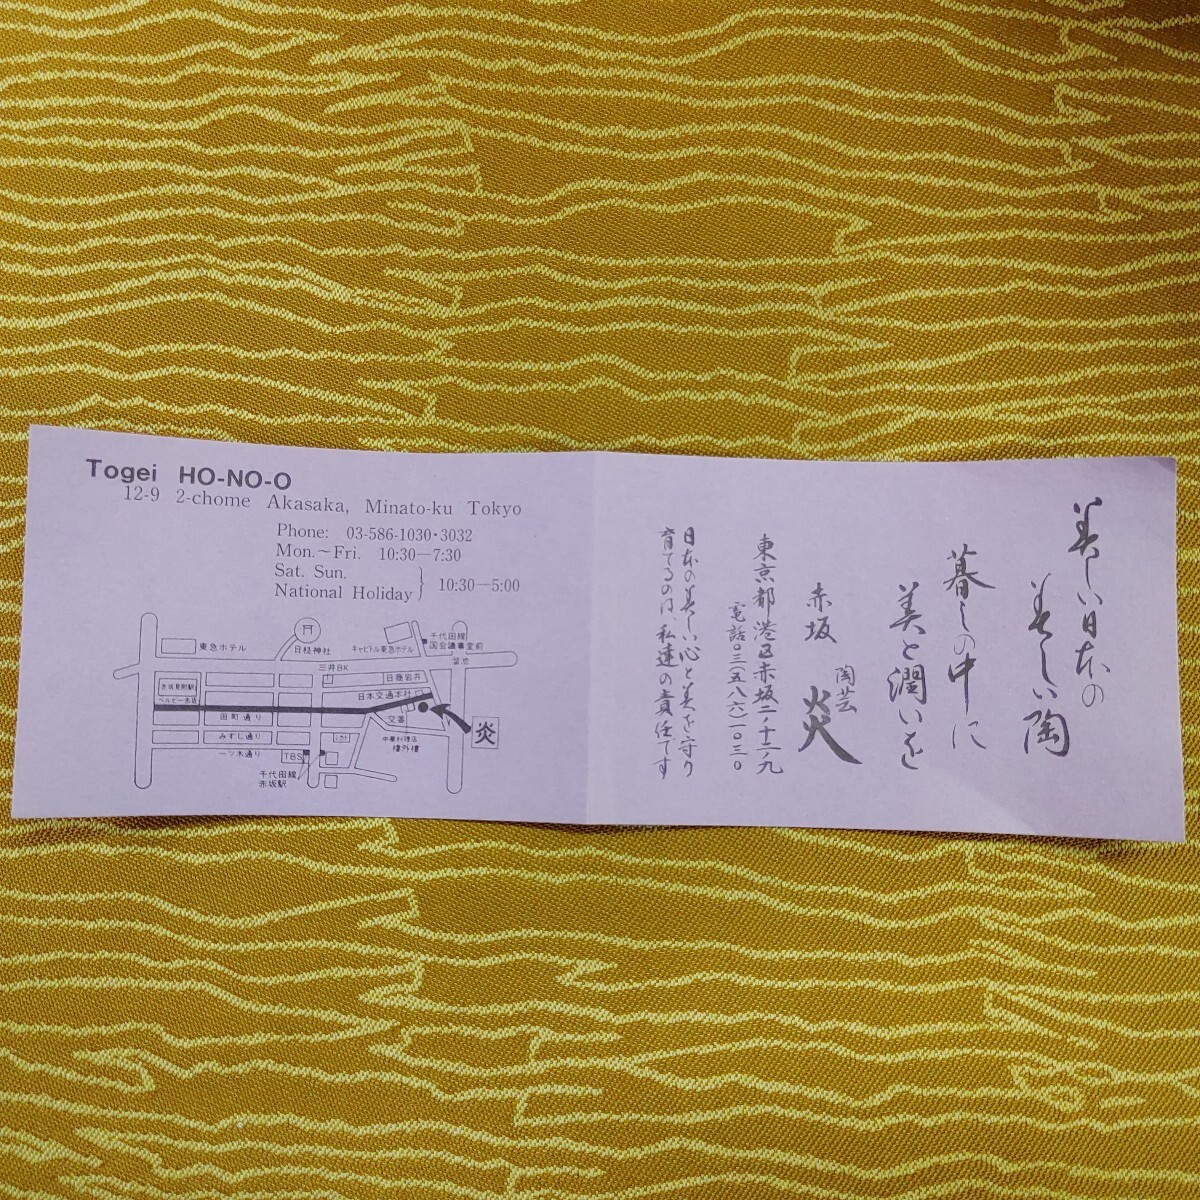 Togei HO-NO-O
12-9 2-chome Akasaka, Minato-ku Tokyo
Phone: 03-586-1030・3032
Mon.～Fri. 10:30—7:30
Sat. Sun.
National Holiday } 10:30—5:00
東急ホテル
日枝神社
キャピトル東急ホテル
千代田線
国会議事堂前
溜池
三井BK
日商岩井
赤坂見附駅
ベルビー赤坂
日本交通本社
田町通り
交番
炎
みすじ通り
中華料理店
樓外樓
一ツ木通り
TBS
千代田線
赤坂駅
美しい日本の
美しい陶
暮しの中に
美と潤いを
赤坂 陶芸 炎
東京都港区赤坂二ノ十二ノ九
電話〇三(五八六)一〇三〇
日本の美しい心と美を守り
育てるのは、私達の責任です